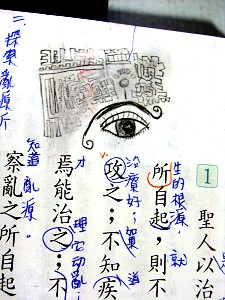 1
聖人以治
所自起，則不
攻之；不知疾
焉能治之；不
察亂之所自起
生的根源，就
治療好；
才
知道亂源。
二、探索亂源